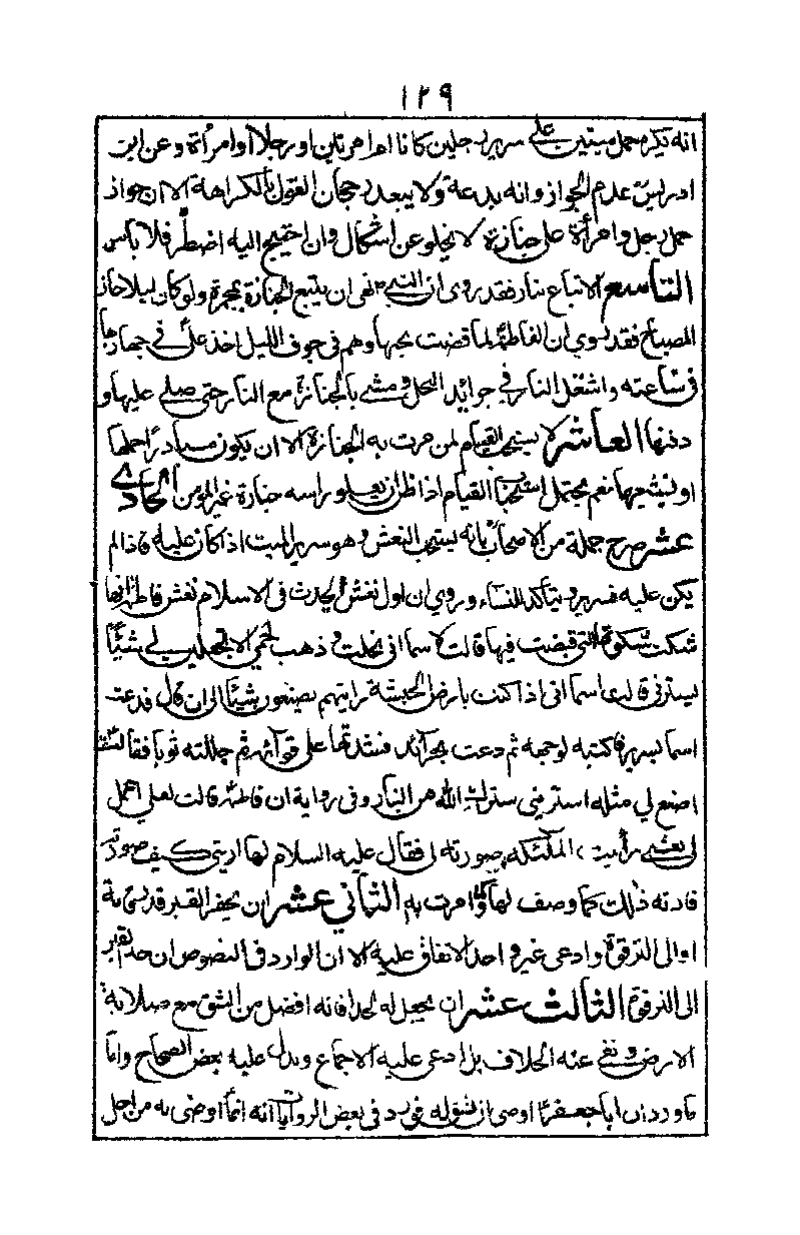 ١٢٩
انه يكره حمل ميتين على سرير رجلين كانا او امرءتين او رجلا وامرأة وعن ابن
ادريس عدم الجواز وانه بدعة ولا يبعد رجحان القول بالكراهة الا ان جواز
حمل رجل وامرأة على جنازة لا يخلو عن اشكال وان احتيج اليه اضطر فلا باس
التاسع الاتباع بنار فقد روى ان النبي نهى ان يتبع الجنازة بمجمرة ولو كان ليلا جاز
المصباح فقد روي ان الفاطمة لما قضت نحبها وهم في جوف الليل اخذ علي في جهازها
في ساعته واشعل النار في جرائد النخل ومشى بالجنازة مع النار حتى صلى عليها و
دفنها العاشر لا يستحب القيام لمن مرت به الجنازة الا ان يكون مبادرا حملها
او تشييعها نعم يحتمل استحباب القيام اذا ظن ان يعلو براسه جنازة غير المؤمن الحادي
عشر صرح جملة من الاصحاب بانه يستحب النعش وهو سرير الميت اذا كان عليه فاذا لم
يكن عليه فسرير ويتأكد للنساء وروي ان اول نعش احدث في الاسلام نعش فاطمة انها
شكت شكوتها التي قبضت فيها قالت لاسما اني نحلت وذهب لحمي الا تجعلين لي شيئا
يسترني قالت اسما اني اذا كنت بارض الحبشة رايتهم يصنعون شيئا الى ان قال فدعت
اسما بسرير فاكبته لوجهه ثم دعت بجرائد فشدتها على قوائمه ثم جللته ثوبا فقالت
اصنع لي مثله استريني سترك الله من النار وفي رواية ان فاطمة قالت لعلي اعمل
لي نعشا رأيت الملئكة صورته لي فقال عليه السلام لها اريني كيف صورته
فارته ذلك كما وصف لها وكما امرت به الثاني عشر ان يحفر القبر قدر قامة
او الى الترقوة وادعى غير واحد الاتفاق عليه الا ان الوارد في النصوص ان حد القبر
الى الترقوة الثالث عشر ان يجعل له لحدا فانه افضل من الشق مع صلابة
الارض ونفي عنه الخلاف بل ادعى عليه الاجماع ويدل عليه بعض الصحاح واما
ما ورد ان ابا جعفر اوصى ان شق له فورد في بعض الروايات انه انما اوصى به من اجل